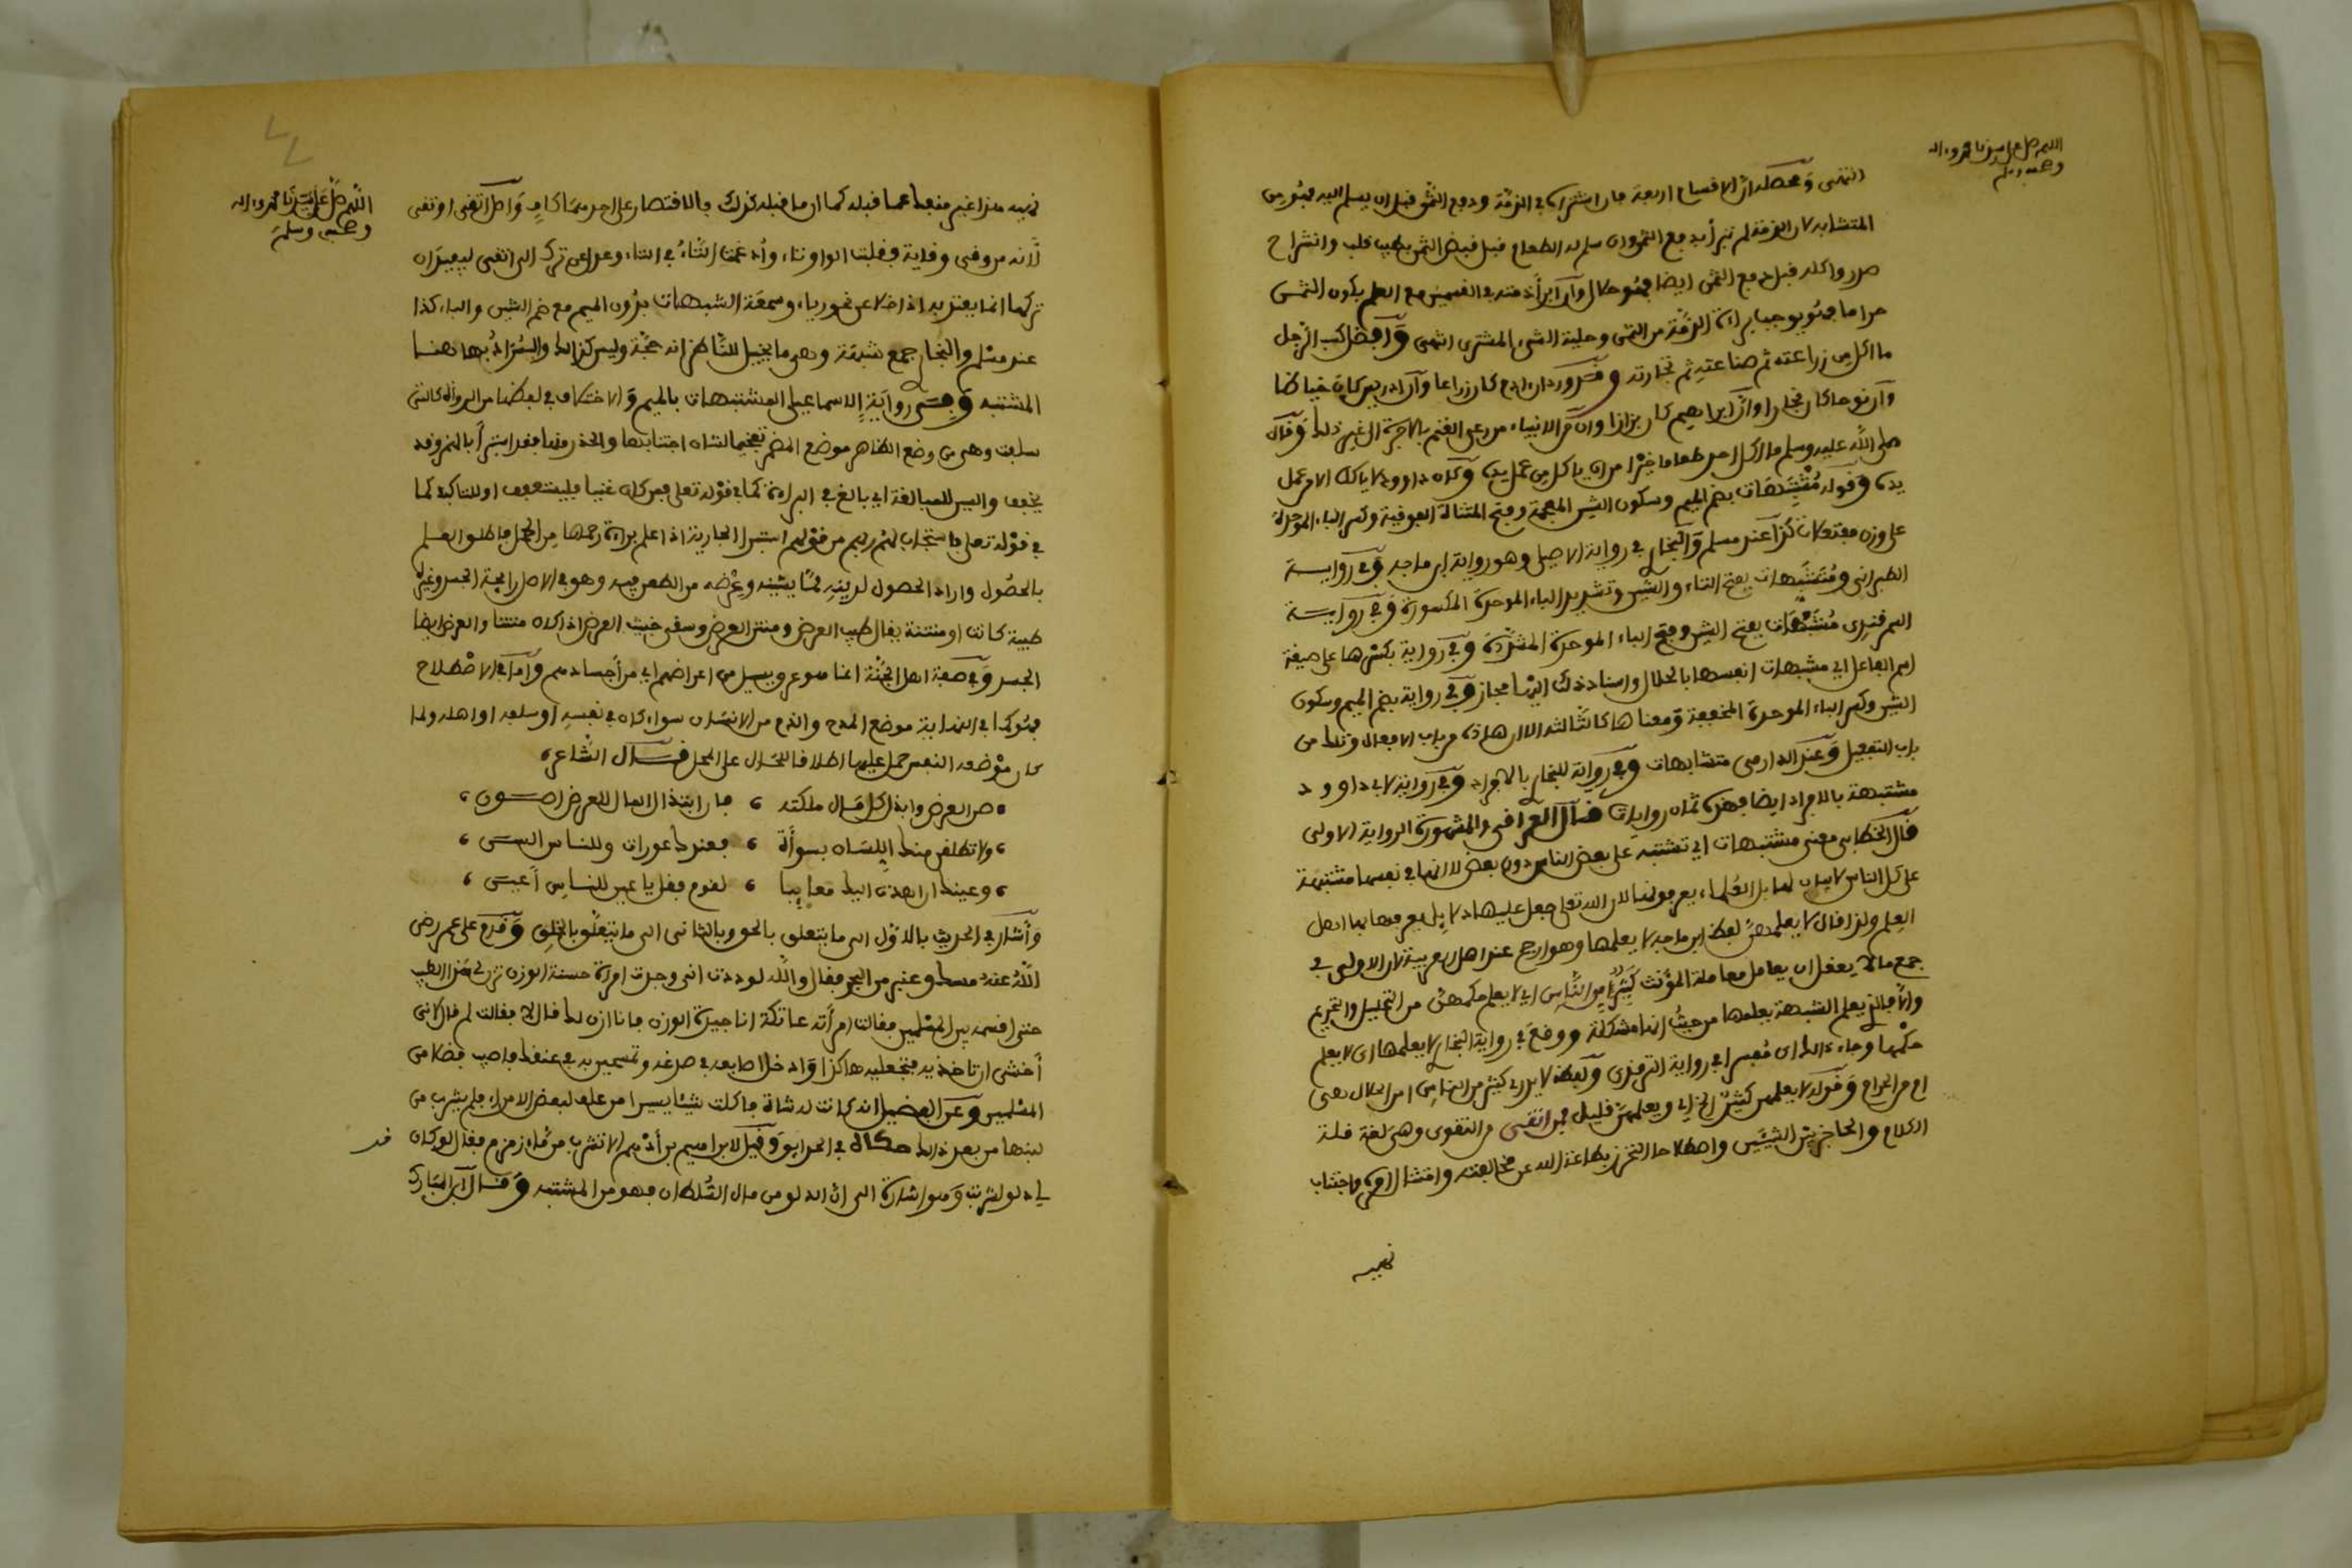 اللهم صل على سيدنا محمد وءاله
وصحبه وسلم
الثمن وحصله ان الاقسام اربعة فان اشتراه في الذمة ودفع الثمن قبل ان يسلم اليه فهو من
المتشابه لان الذمة لم تبرأ بدفع الثمن وان سلم له الطعام قبل قبض الثمن بطيب قلب وانشراح
صدر واكله قبل دفع الثمن ايضا فهو حلال وان ابرأ ذمته في القسمين مع العلم بكون الثمن
حراما فهو يوجب براءة الذمة من الثمن وحلية الشيء المشترى الثمن وافضل كسب الرجل
ما اكل من زراعته ثم صناعته ثم تجارته وقد ورد ان ادم كان زراعا وان ادريس كان خياطا
وان نوحا كان نجارا وان ابراهيم كان بزازا وان من الانبياء من رعى الغنم بالاجرة الى غير ذلك وقال
صلى الله عليه وسلم ما اكل احد طعاما خيرا من ان ياكل من عمل يده وكان داوود لا ياكل الا من عمل
يده وقوله مشتبهات بضم الميم وسكون الشين المعجمة وفتح المثناة الفوقية وكسر الباء الموحدة
على وزن مفتعلات كذا عند مسلم والبخاري في رواية الاصيلي وهو رواية ابن ماجه وفي رواية
الطبراني ومتشبهات بفتح التاء والشين وتشديد الباء الموحدة المكسورة وفي رواية
السمرقندي مشبهات بفتح الشين وفتح الباء الموحدة المشددة وفي رواية بكسرها على صيغة
اسم الفاعل اي مشبهات انفسها بالحلال واسناد ذلك اليها مجاز وفي رواية بضم الميم وسكون
الشين وكسر الباء الموحدة المخففة ومعناها كالثالثة الا ان هذه من باب الافعال وتلك من
باب التفعيل وعند الدارمي متشابهات وفي رواية للبخاري بالافراد وفي رواية لابي داوود
مشتبهة بالافراد ايضا فهذه ثمان روايات قال العراقي والمشهورة الرواية الاولى
قال الخطابي معنى مشتبهات اي تشتبه على بعض الناس دون بعض لا انها في نفسها مشتبهة
على كل الناس لا بيان لها بل العلماء يعرفونها لان الله تعلى جعل عليها دلايل يعرفها بها اهل
العلم ولذا قال لا يعلمهن لفظ ابن ماجه لا يعلمها وهو ارجح عند اهل العربية لان الاولى في
جمع ما لا يعقل ان يعامل معاملة المؤنث كثير من الناس اي لا يعلم حكمهن من التحليل والتحريم
والا فالذي يعلم الشبهة يعلمها من حيث انها مشكلة ووقع في رواية البخاري لا يعلمها اي لا يعلم
حكمها وجاء ذلك مفسرا في رواية الترمذي ولفظه لا يدري كثير من الناس امن الحلال هي
ام من الحرام وقوله لا يعلمهن كثير الخ اي ويعلمهن قليل فمن اتقى من التقوى وهي لغة قلة
الكلام والحاجز بين الشيئين واصطلاحا التحرز بطاعة الله عن مخالفته وامتثال امره واجتناب
نهيه
اللهم صل على سيدنا محمد وءاله
وصحبه وسلم
نهيه هذا غير منفك عما قبله كما ان ما قبله كذلك فالاقتصار على احدهما كاف واصل اتقى اوتقى
لانه من وقى وقاية فقلبت الواو تاء وأدغمت التاء في التاء وعدل عن ترك الى اتقى ليفيد ان
تركها انما يعتد به اذا خلا عن نحو رياء وسمعة الشبهات بدون الميم مع ضم الشين والباء كذا
عند مسلم والبخاري جمع شبهة وهي ما يخيل للناظر انه حجة وليس كذلك والمراد بها هنا
المشتبه وفي رواية الاسماعيلي المشتبهات بالميم والاختلاف في لفظها من الرواة كالتي
سبقت وهي من وضع الظاهر موضع المضمر تفخيما لشان اجتنابها والحذر منها فقد استبرأ بالهمز وقد
يخفف والسين للمبالغة اي بالغ في البراءة كما في قوله تعلى ومن كان غنيا فليستعفف او للتاكيد كما
في قوله تعلى فاستجاب لهم ربهم من قولهم استبرا الجارية اذا علم براءة رحمها من الحمل فاطلق العلم
بالحصول واراد الحصول لدينه مما يشينه وعرضه من الطعن فيه وهو في الاصل رايحة الجسد وغيره
طيبة كانت او منتنة يقال طيب العرض ومنتن العرض وسقى خبيث العرض اذا كان منتنا والعرض ايضا
الجسد وفي صفة اهل الجنة انما هو عرق يسيل من اعراضهم اي من أجسادهم وأما في الاصطلاح
فهو كما في النهاية موضع المدح والذم من الانسان سواء كان في نفسه أو سلفه او اهله ولما
كان موضعه النفس حمل عليها اطلاقا للحال على المحل قال الشاعر
صن العرض وابذل كل مال ملكته ، فان ابتذال المال للعرض اصون
ولا تطلقن منك اللسان بسوأة ، فعندك عورات وللناس السن
وعينك ان اهدت اليك معايبا ، لقوم فقل يا عين للناس أعين
وأشار في الحديث بالاول الى ما يتعلق بالحق وبالثاني الى ما يتعلق بالخلق وقدم على عمر رضي
الله عنه مسك وعنبر من البحر فقال والله لوددت اني وجدت امرأة حسنة الوزن تزن لي هذا الطيب
حتى اقسمه بين المسلمين فقالت امرأته عاتكة انا جيدة الوزن فانا ازن لك قال لا فقالت لم قال لاني
أخشى ان تاخذيه فتجعليه هكذا وادخل اصابعه في صدغه وتمسحين به في عنقك فاصيب فضلا من
المسلمين وعن الفضيل انه كانت له شاة فاكلت شيئا يسيرا من علف لبعض الامراء فلم يشرب من
لبنها من بعد ذلك حكاه في الحدايق وقيل لابراهيم بن أدهم الا تشرب من ماء زمزم فقال لو كان
لي دلو لشربت وهو اشارة الى ان الدلو من مال السلطان فهو من المشتبه وقال ابن المبارك